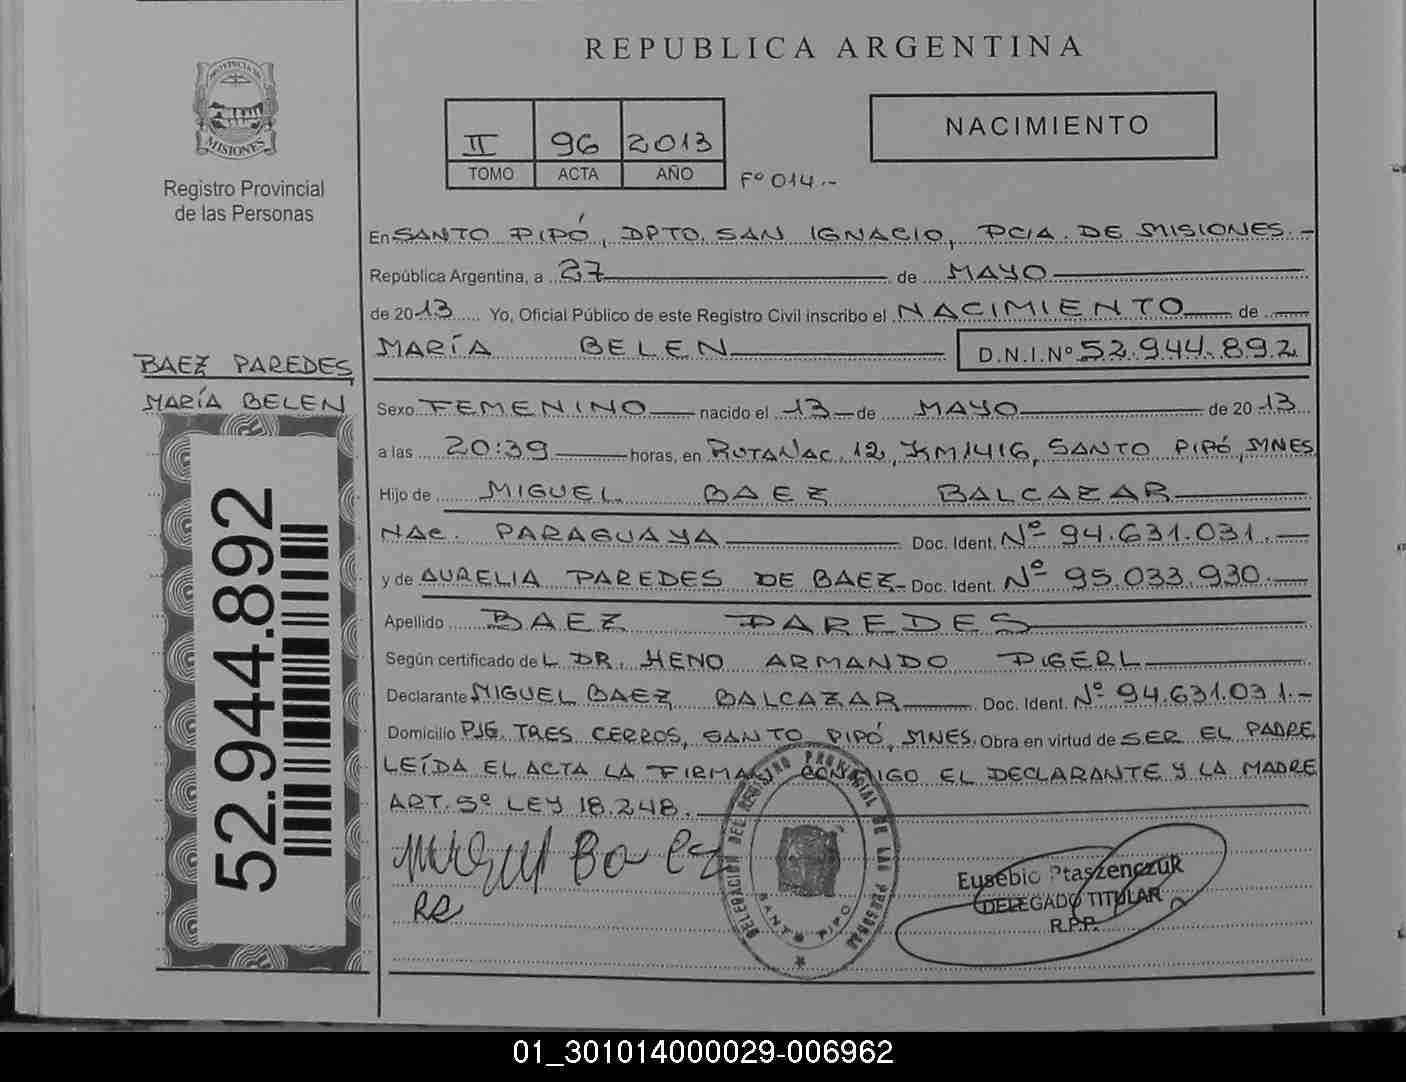 REPUBLICA ARGENTINA
MISIONES
Registro Provincial
de las Personas
II 96 2013
TOMO ACTA AÑO
Fº 014.-
NACIMIENTO
En SANTO PIPÓ, DPTO. SAN IGNACIO, PCIA. DE MISIONES.-
República Argentina, a 27 de MAYO
de 2013 Yo, Oficial Público de este Registro Civil inscribo el NACIMIENTO de
MARÍA BELEN D.N.I. Nº 52.944.892
BAEZ PAREDES
MARÍA BELEN
Sexo FEMENINO nacido el 13 de MAYO de 2013
a las 20:39 horas, en RUTA NAC. 12, KM 1416, SANTO PIPÓ, MNES
Hijo de MIGUEL BAEZ BALCAZAR
NAC. PARAGUAYA Doc. Ident. Nº 94.631.031.-
y de AURELIA PAREDES DE BAEZ- Doc. Ident. Nº 95.033.930.-
Apellido BAEZ PAREDES
Según certificado de L DR. HENO ARMANDO DIGERL
Declarante MIGUEL BAEZ BALCAZAR Doc. Ident. Nº 94.631.031.-
Domicilio PJE. TRES CERROS, SANTO PIPÓ, MNES. Obra en virtud de SER EL PADRE
LEÍDA EL ACTA LA FIRMAN CONMIGO EL DECLARANTE Y LA MADRE
ART. 5º LEY 18.248.
52.944.892
Miguel Baez
DELEGACION DEL REGISTRO PROVINCIAL DE LAS PERSONAS
SANTO PIPO
Eusebio Ptaszenczuk
DELEGADO TITULAR
R.P.P.
01_301014000029-006962